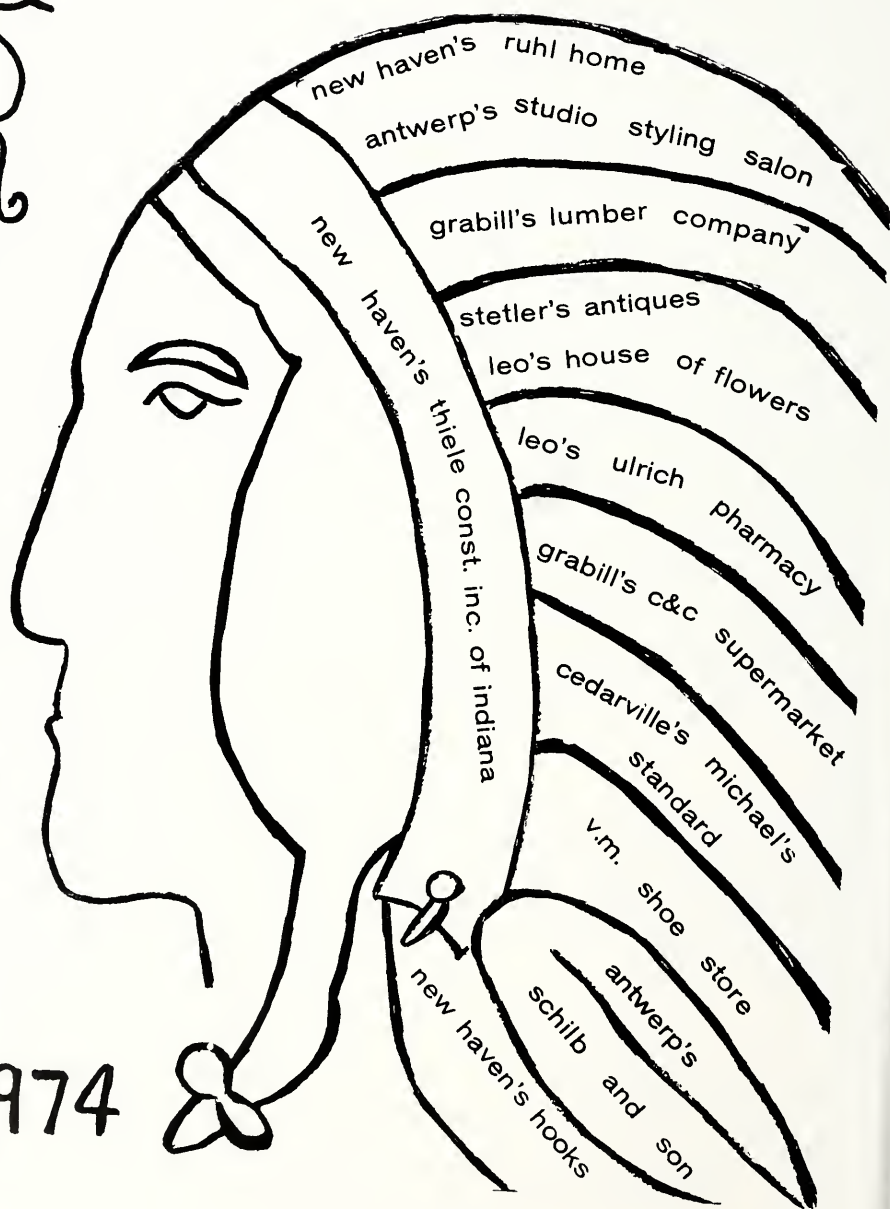 new haven's ruhl home
antwerp's studio styling salon
grabill's lumber company
stetler's antiques
leo's house of flowers
leo's ulrich pharmacy
grabill's c&c supermarket
cedarville's michael's
standard
v.m. shoe store
antwerp's
schilb and son
new haven's hooks
new haven's thiele const. inc. of indiana
974